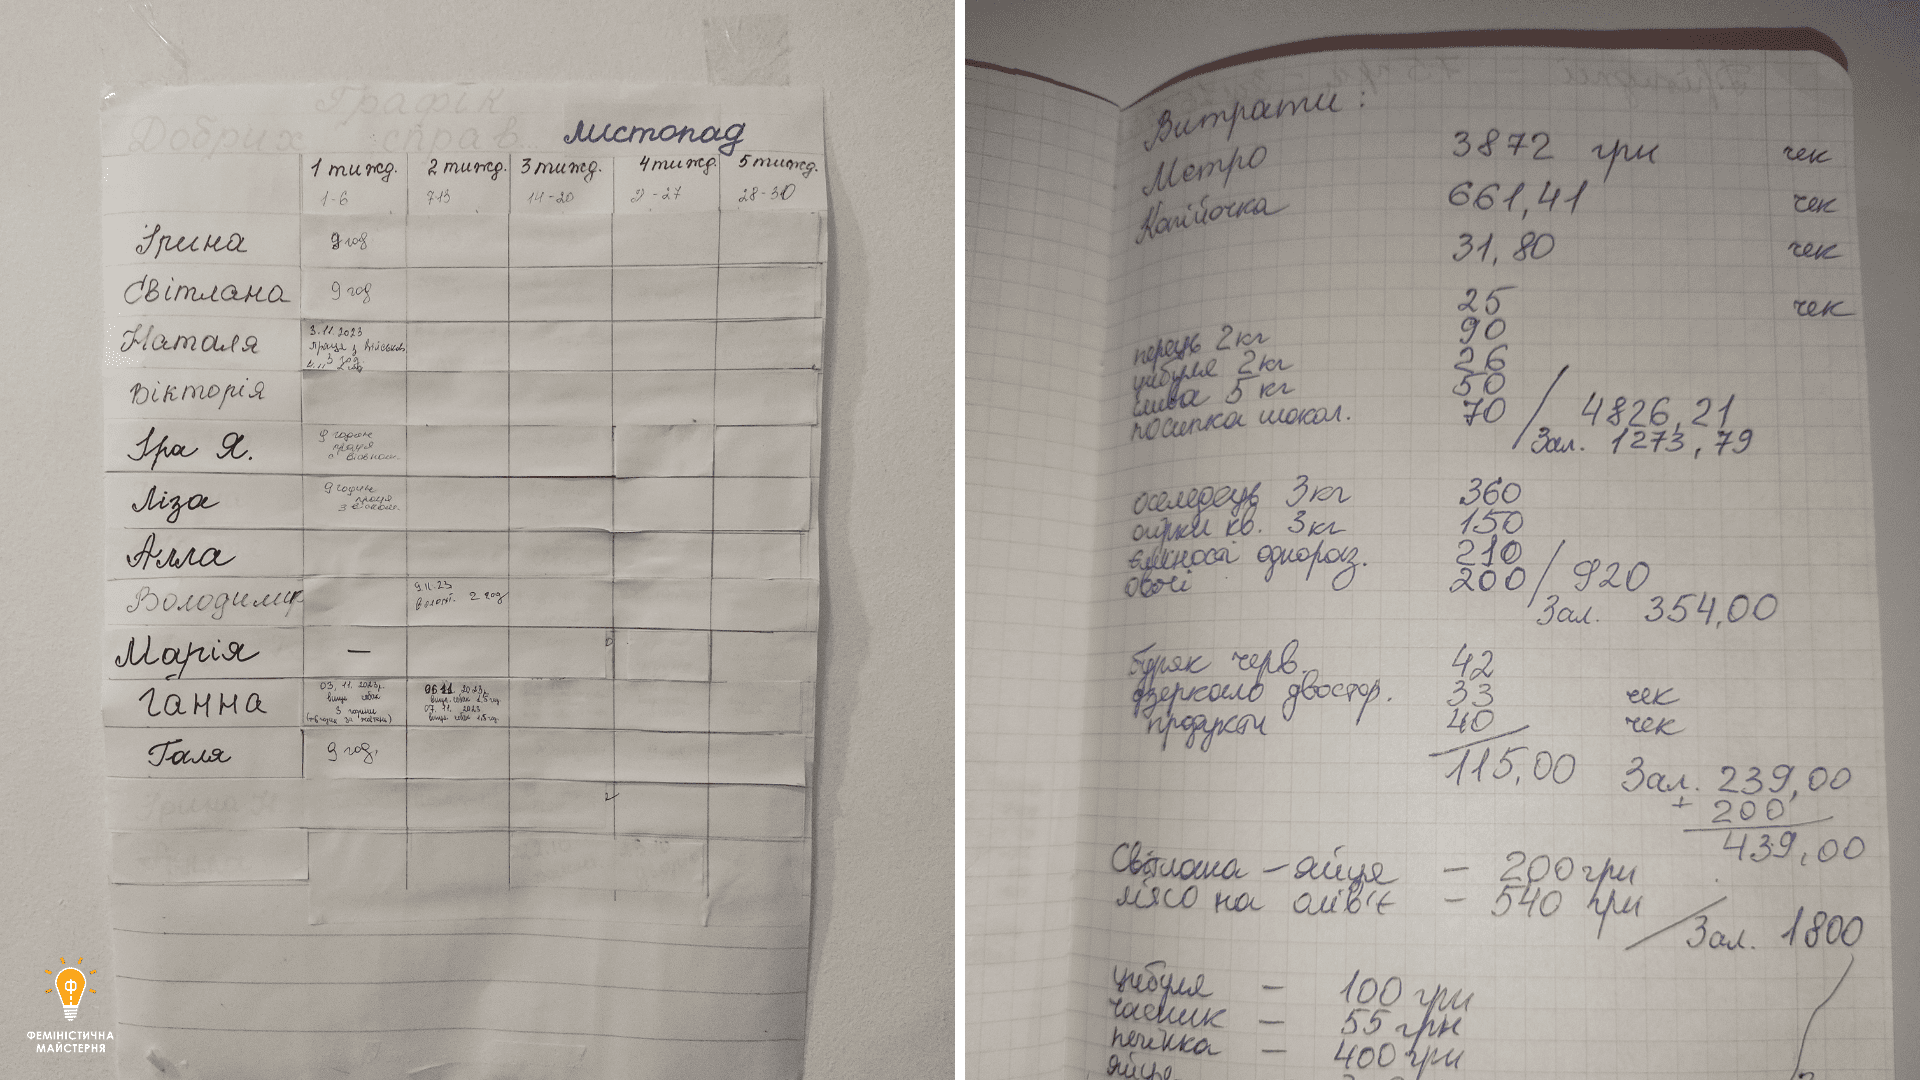 Графік
Добрих справ листопад
1 тижд. 2 тижд. 3 тижд. 4 тижд. 5 тижд.
1-6 7-13 14-20 21-27 28-30
Ірина 9 год
Світлана 9 год
Наталя 3.11.2023
праця з
Вікторія
Іра Я. 9 годин
праця
Ліза 9 годин
праця
з
Алла
Володимир 9.11.23
2 год
Марія —
Ганна 03.11.2023р. 06.11.2023р.
3 години 07.11.2023
Галя 9 год.
ФЕМІНІСТИЧНА
МАЙСТЕРНЯ
Витрати:
Метро 3872 грн чек
Копійочка 661,41 чек
31,80 чек
25 чек
перець 2кг 90
цибуля 2кг 26
слива 5 кг 50
посипка шокол. 70 / 4826,21
Зал. 1273,79
оселедець 3кг 360
огірки кв. 3кг 150
ємності однораз. 210
овочі 200 / 920
Зал. 354,00
буряк черв. 42
дзеркало двостор. 33 чек
продукти 40 чек
115,00 Зал. 239,00
+ 200
439,00
Світлана – яйця – 200 грн
м'ясо на олів'є – 540 грн
Зал. 1800
цибуля – 100 грн
часник – 55 грн
печінка – 400 грн
яйце